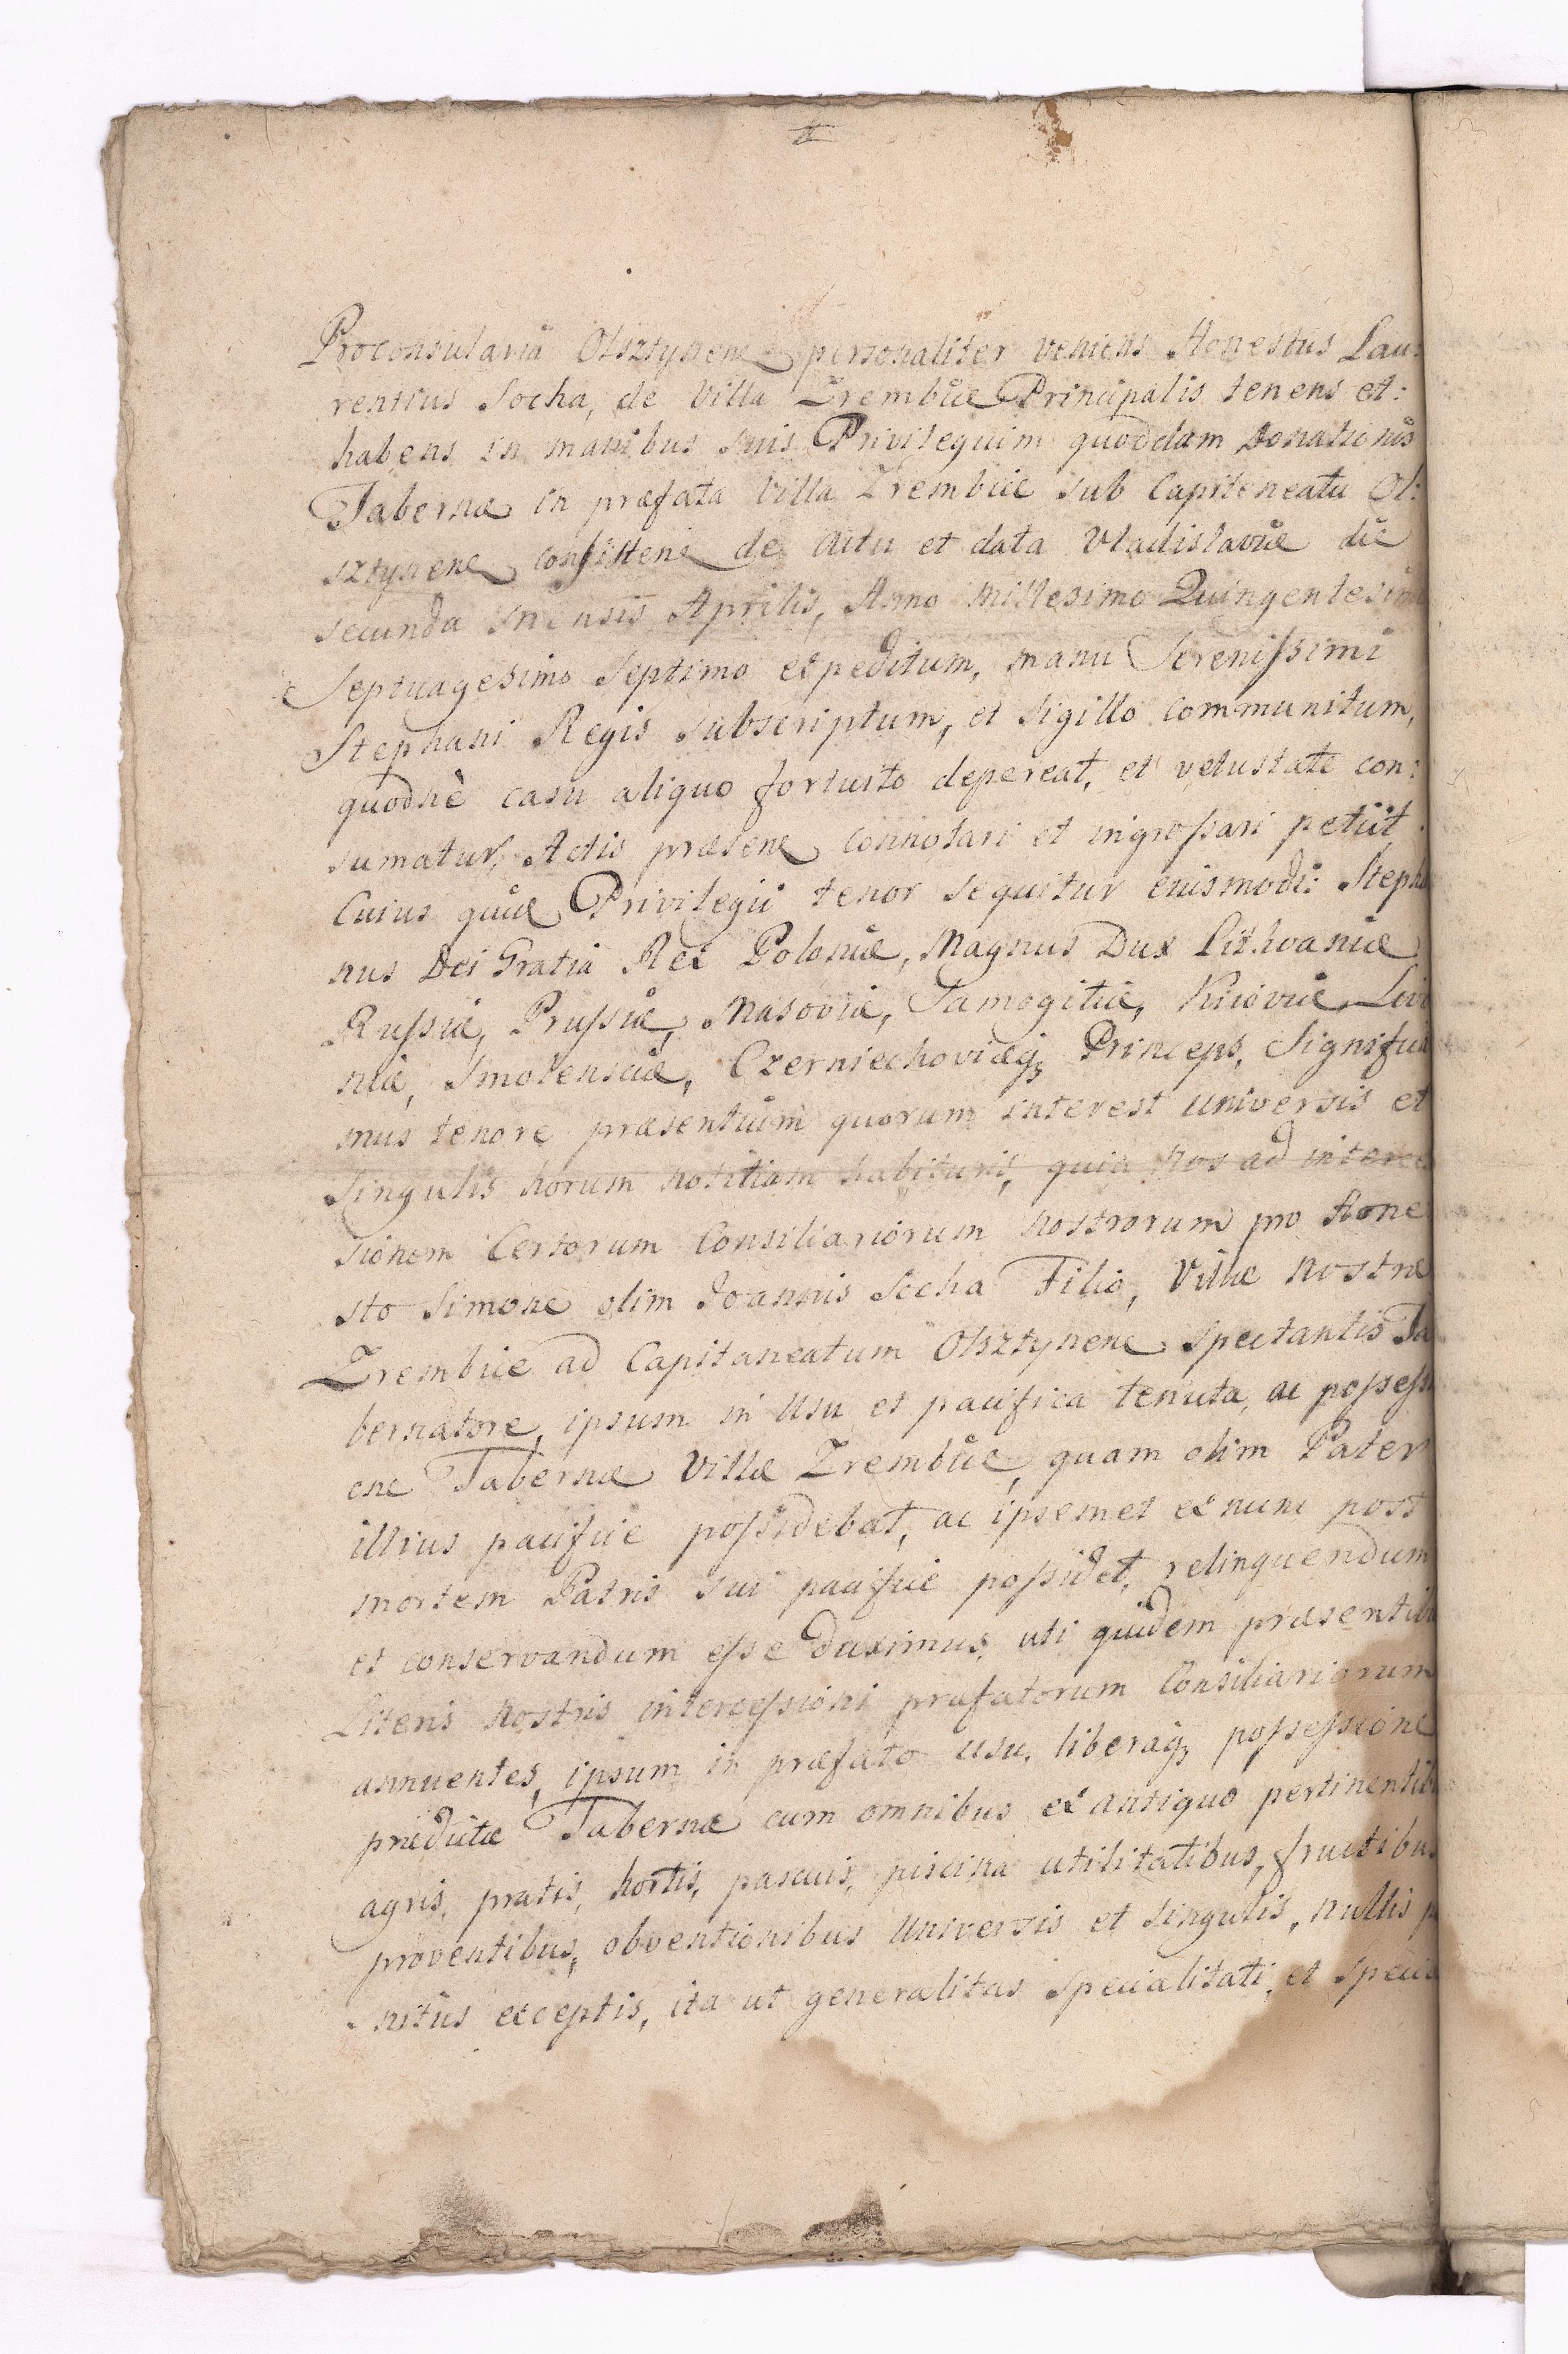 II
Proconsularia Olsztynen personaliter veniens Honestus Lau:
rentius Socha, de Villa Zrembice Principalis tenens et:
habens in manibus suis Privilegium quoddam Donationis
Tabernæ in præfata Villa Zrembice sub Capiteneatu Ol:
sztynen consisten de Actu et data Vladislaviæ die
secunda Mensis Aprilis, Anno Millesimo Quingentesimo
Septuagesimo Septimo expeditum, manu Serenissimi
Stephani Regis subscriptum, et Sigillo communitum,
quod nè casu aliquo fortuito depereat, et vetustate con:
sumatur, Actis præsen connotari et ingrossari petiit
Cuius quidem Privilegii tenor sequitur eiusmodi: Stepha
nus Dei Gratia Rex Poloniæ, Magnus Dux Lithvaniæ
Russiæ, Prussiæ, Masoviæ, Samogitiæ, Kiioviæ Livo
niæ, Smolensciæ, Czerniechoviæq, Princeps, Significa
mus tenore præsentium quorum interest universis et
Singulis horum notitiam habituris, quia Nos ad interces
sionem Certorum Consiliariorum Nostrorum pro Hone
sto Simone olim Joannis Socha Filio, Villæ Nostræ
Zrembice ad Capitaneatum Olsztynen Spectantis Ta
bernatore, ipsum in Usu et pacifica tenuta, ac possessi
one Tabernæ Villæ Zrembice, quam olim Pater
illius pacifice possidebat, ac ipsemet ex nunc post
mortem Patris sui pacifice possidet, relinquendum
et conservandum esse duximus, uti quidem præsentibu
Literis Nostris intercessioni præfatorum Consiliariorum
annuentes, ipsum in præfato usu, liberaq, possessione
prædictæ Tabernæ cum omnibus ex antiquo pertinentib
agris, pratis, hortis, pascuis, piscina utilitatibus, fructibus
proventibus, obventionibus Universis et singulis, nullis pe
nitùs exceptis, ita ut generalitas Specialitati, et Specia